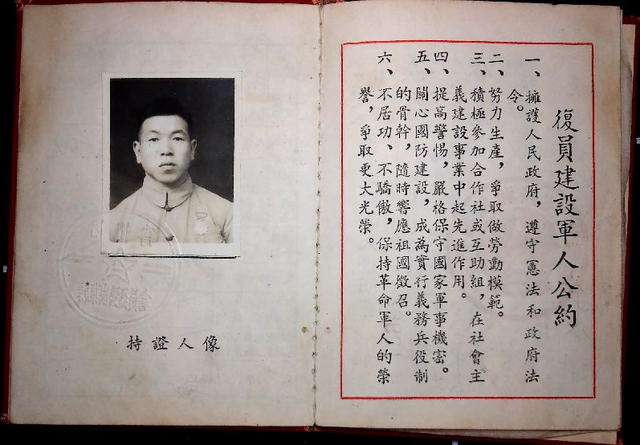 復員建設軍人公約
一、擁護人民政府，遵守憲法和政府法
令。
二、努力生產，爭取做勞動模範。
三、積極參加合作社或互助組，在社會主
義建設事業中起先進作用。
四、提高警惕，嚴格保守國家軍事機密。
五、關心國防建設，成為實行義務兵役制
的骨幹，隨時響應祖國徵召。
六、不居功、不驕傲，保持革命軍人的榮
譽，爭取更大光榮。
像人證持